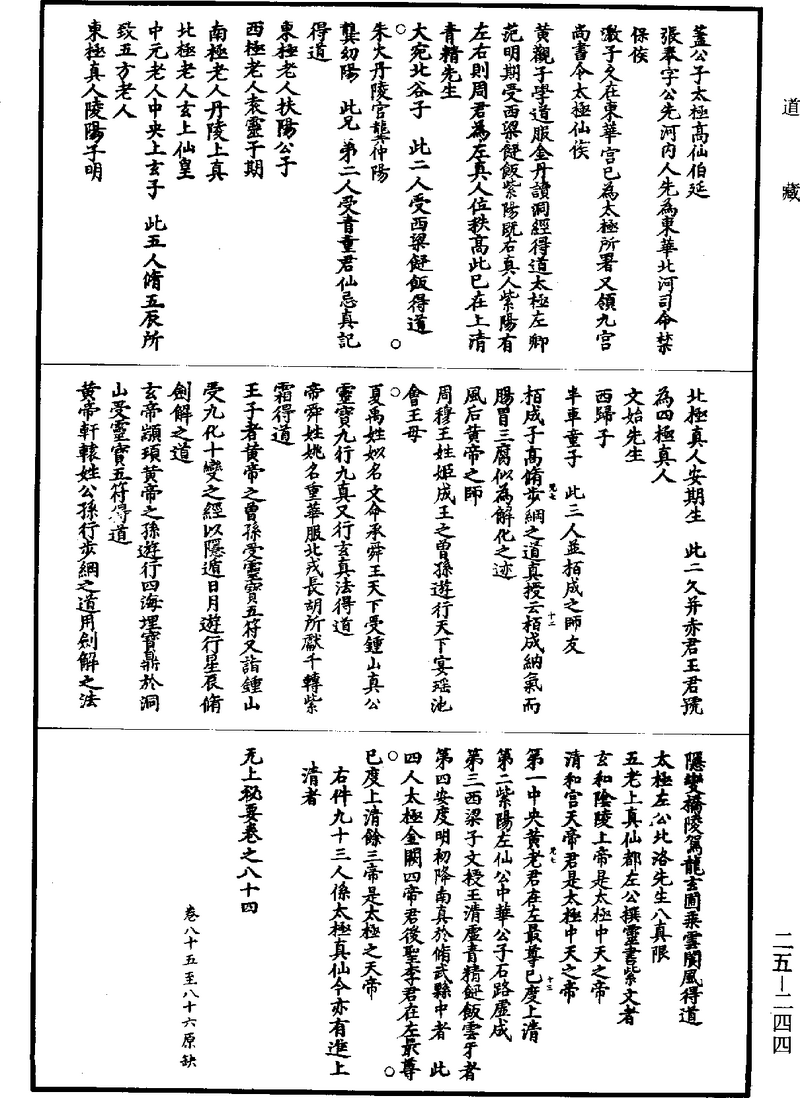 道藏
蓋公子太極高仙伯延
張奉字公先河內人先為東華北河司命禁
保侯
激子久在東華宮已為太極所署又領九宮
尚書令太極仙侯
黃觀子學道服金丹讀洞經得道太極左卿
范明期受西梁𩚳飯紫陽既右真人紫陽有
左右則周君為左真人位秩高此已在上清
青精先生
大宛北谷子　此二人受西梁𩚳飯得道
朱火丹陵宮龔仲陽
龔幼陽　此兄弟二人受青童君仙忌真記
得道
東極老人扶陽公子
西極老人素靈子期
南極老人丹陵上真
北極老人玄上仙皇
中元老人中央上玄子　此五人脩五辰所
致五方老人
東極真人陵陽子明
北極真人安期生　此二久并赤君王君號
為四極真人
文始先生
西歸子
半車童子　此三人並栢成之師友
栢成子高脩步綱之道真授云栢成納氣而
腸胃三腐似為解化之迹
風后黃帝之師
周穆王姓姬成王之曾孫遊行天下宴瑶池
會王母
夏禹姓姒名文命承舜王天下受鍾山真公
靈寶九行九真又行玄真法得道
帝舜姓姚名重華服北戎長胡所獻千轉紫
霜得道
王子者黃帝之曾孫受靈寶五符又詣鍾山
受九化十變之經以隱遁日月遊行星辰脩
劍解之道
玄帝顓頊黃帝之孫遊行四海埋寶鼎於洞
山受靈寶五符得道
黃帝軒轅姓公孫行步綱之道用劍解之法
隱變橋陵駕龍玄圃乘雲閬風得道
太極左公北洛先生八真限
五老上真仙都左公撰靈書紫文者
玄和陰陵上帝是太極中天之帝
清和宮天帝君是太極中天之帝
第一中央黃老君在左最尊已度上清
第二紫陽左仙公中華公子石路虛成
第三西梁子文授王清虛青精𩚳飯雲牙者
第四安度明初降南真於脩武縣中者　此
四人太極金闕四帝君後聖李君在左最尊
已度上清餘三帝是太極之天帝
右件九十三人係太極真仙今亦有進上
清者
无上秘要卷之八十四
卷八十五至八十六原缺
二五—二四四